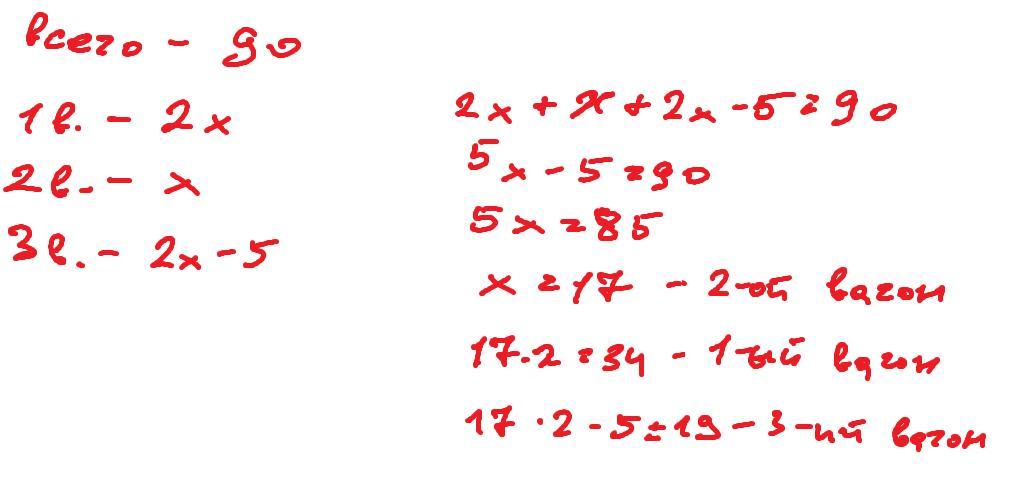 всего - 90
1в. - 2x
2в. - x
3в. - 2x - 5
2x + x + 2x - 5 = 90
5x - 5 = 90
5x = 85
x = 17 - 2-ой вагон
17 · 2 = 34 - 1-ый вагон
17 · 2 - 5 = 19 - 3-ий вагон